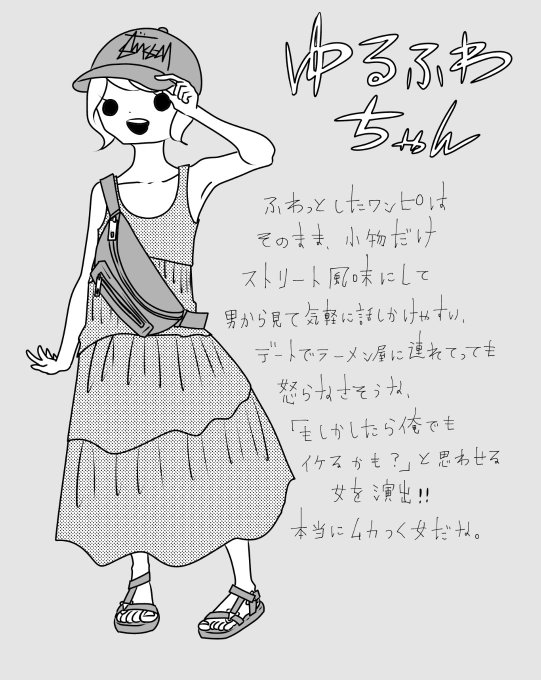 STÜSSY
ゆるふわ
ちゃん
ふわっとしたワンピは
そのまま、小物だけ
ストリート風味にして
男から見て気軽に話しかけやすい、
デートでラーメン屋に連れてっても
怒らなさそうな、
「もしかしたら俺でも
イケるかも？」と思わせる
女を演出!!
本当にムカつく女だな。